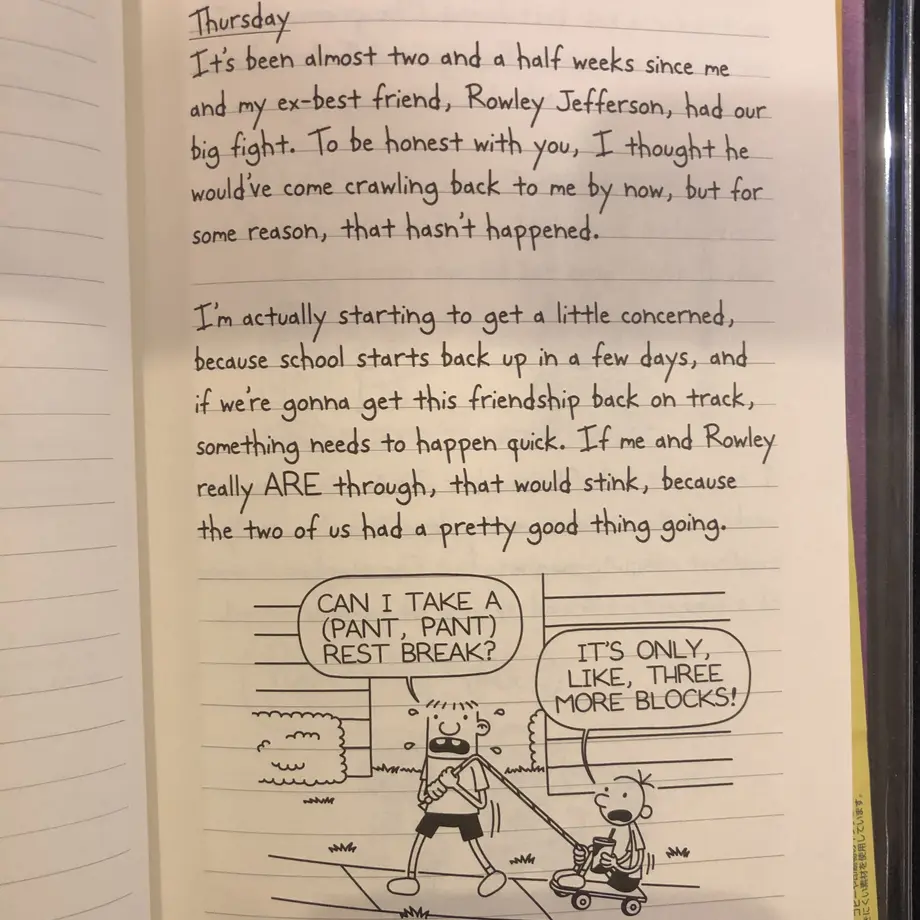 Thursday
It's been almost two and a half weeks since me
and my ex-best friend, Rowley Jefferson, had our
big fight. To be honest with you, I thought he
would've come crawling back to me by now, but for
some reason, that hasn't happened.
I'm actually starting to get a little concerned,
because school starts back up in a few days, and
if we're gonna get this friendship back on track,
something needs to happen quick. If me and Rowley
really ARE through, that would stink, because
the two of us had a pretty good thing going.
CAN I TAKE A
(PANT, PANT)
REST BREAK?
IT'S ONLY,
LIKE, THREE
MORE BLOCKS!